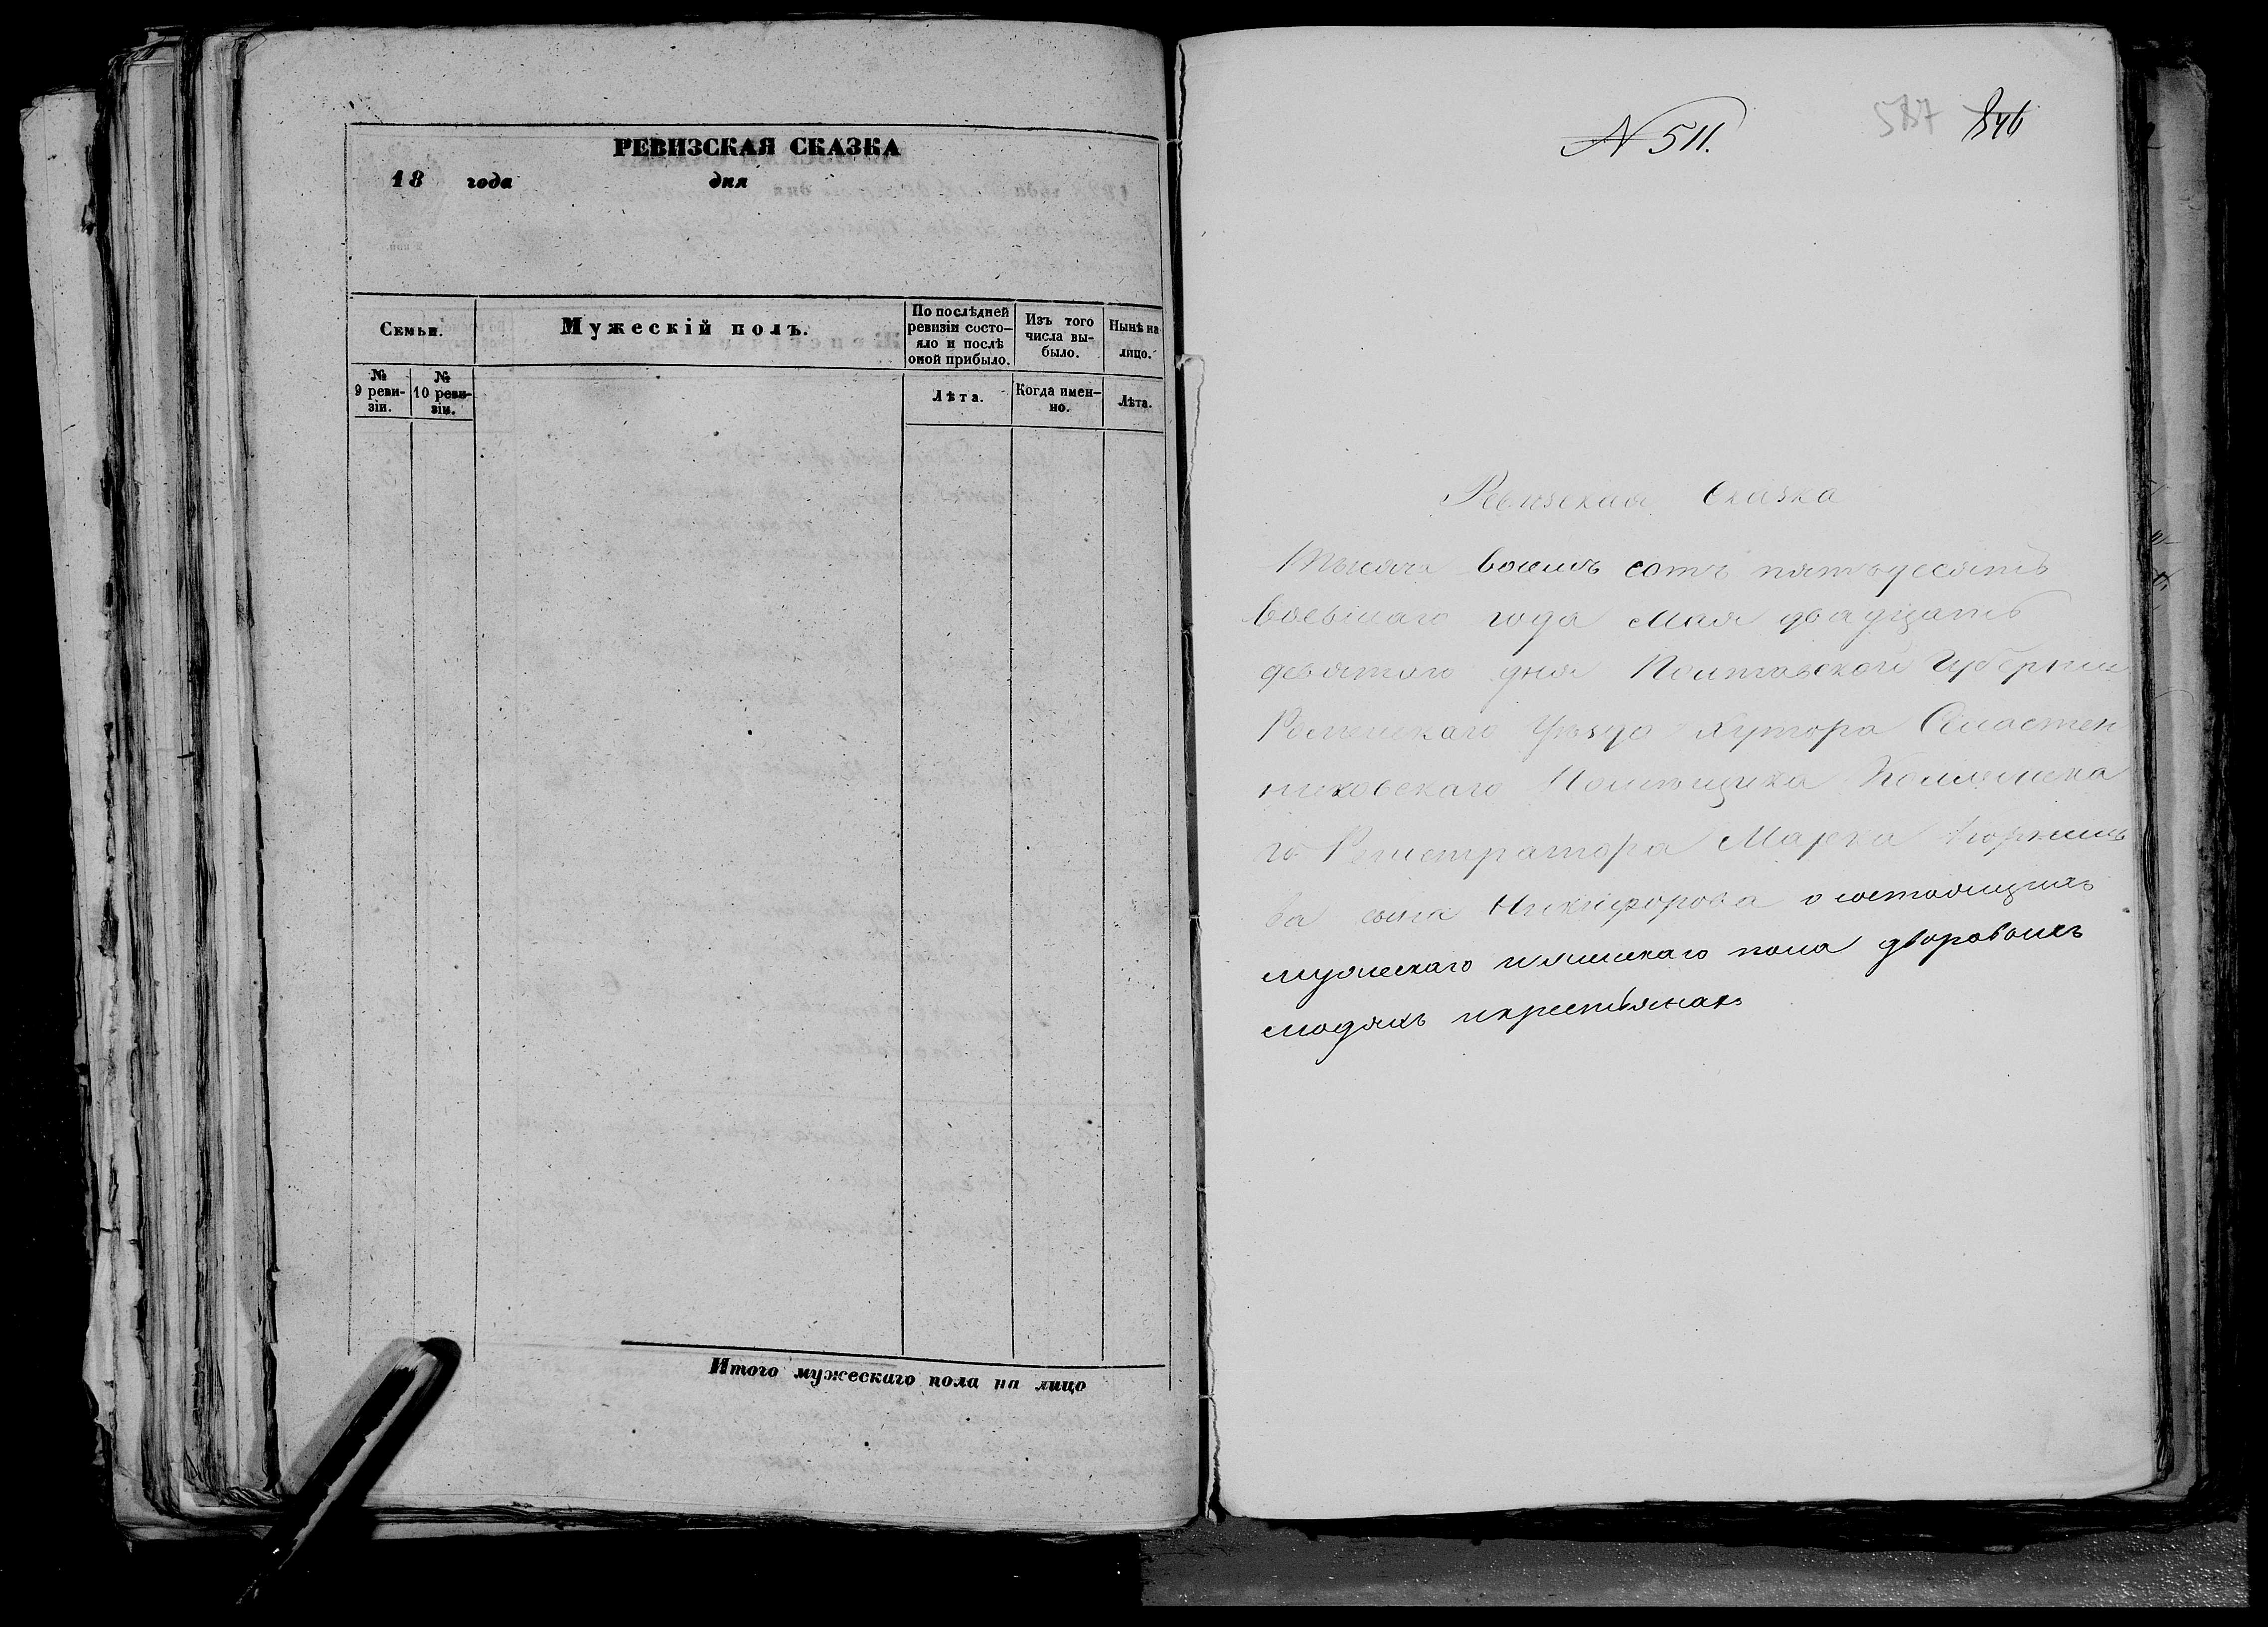 РЕВИЗСКАЯ СКАЗКА
18 года дня
Семьи.
Мужескій полъ.
По послѣдней
ревизіи состо-
яло и послѣ
оной прибыло.
Изъ того
числа вы-
было.
Нынѣ на
лицо.
№
9 реви-
зіи.
№
10 реви-
зіи.
Лѣта.
Когда имен-
но.
Лѣта.
Итого мужескаго пола на лицо
N 511.
587 846
Ревизская Сказка
Тысяча восемь сотъ пятьдесятъ
восьмаго года Мая двадцать
девятого дня Полтавской Губерніи
Роменскаго Уѣзда хутора Сластен
никовскаго Помѣщика Коллежска
го Регистратора Марка
ва сына Никифорова о состоящихъ
мужескаго и женскаго пола дворовыхъ
людяхъ и крестьянах